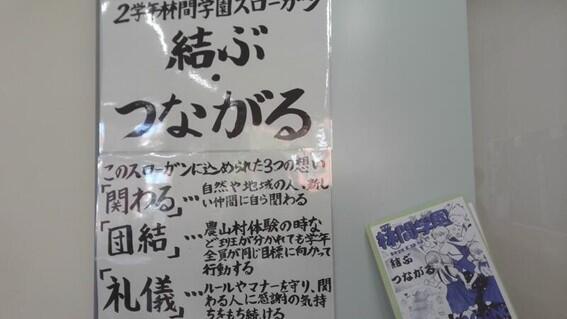 2学年林間学園スローガン
結ぶ
・
つながる
このスローガンに込められた3つの想い
「関わる」…自然や地域の人、新し
い仲間に自ら関わる
「団結」…農山村体験の時な
ど班が分かれても学年
全員が同じ目標に向かって
行動する
「礼儀」…ルールやマナーを守り、関
わる人に感謝の気持
ちをもち続ける
林間学園
結ぶ
つながる